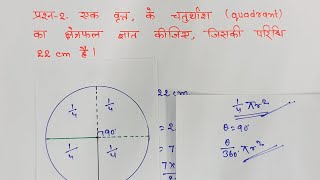 प्रश्न-2. एक वृत्त, के चतुर्थांश (quadrant)
का क्षेत्रफल ज्ञात कीजिए, जिसकी परिधि
22 cm है।
1/4 1/4
90°
1/4 1/4
22 cm
= 2
= 7
7×
1/4 πr²
θ = 90°
θ/360 · πr²